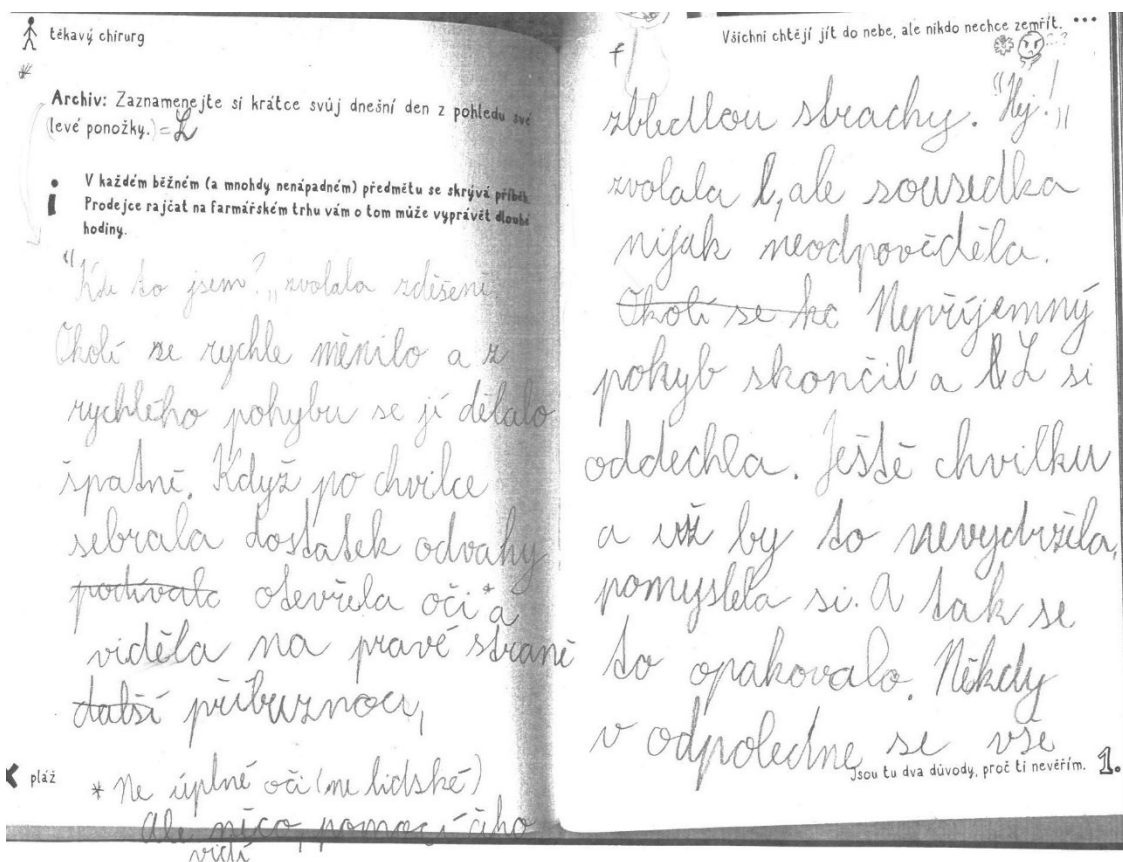 těkavý chirurg
*
Archiv: Zaznamenejte si krátce svůj dnešní den z pohledu své
(levé ponožky.) = L
i
V každém běžném (a mnohdy nenápadném) předmětu se skrývá příběh.
Prodejce rajčat na farmářském trhu vám o tom může vyprávět dlouhé
hodiny.
"Kde to jsem?„ zvolala zděšeně.
Okolí se rychle měnilo a z
rychlého pohybu se jí dělalo
špatně. Když po chvilce
sebrala dostatek odvahy
podívala otevřela oči * a
viděla na pravé straně
další příbuznou,
pláž
* Ne úplně oči (ne lidské)
Ale něco pomocí čeho
vidí
Všichni chtějí jít do nebe, ale nikdo nechce zemřít. ...
f
zbledlou strachy. "Hej!„
zvolala L, ale sousedka
nijak neodpověděla.
Okolí se Nepříjemný
pohyb skončil a L si
oddechla. Ještě chvilku
a už by to nevydržela,
pomyslela si. A tak se
to opakovalo. Někdy
v odpoledne se vše
Jsou tu dva důvody, proč ti nevěřím. 1.